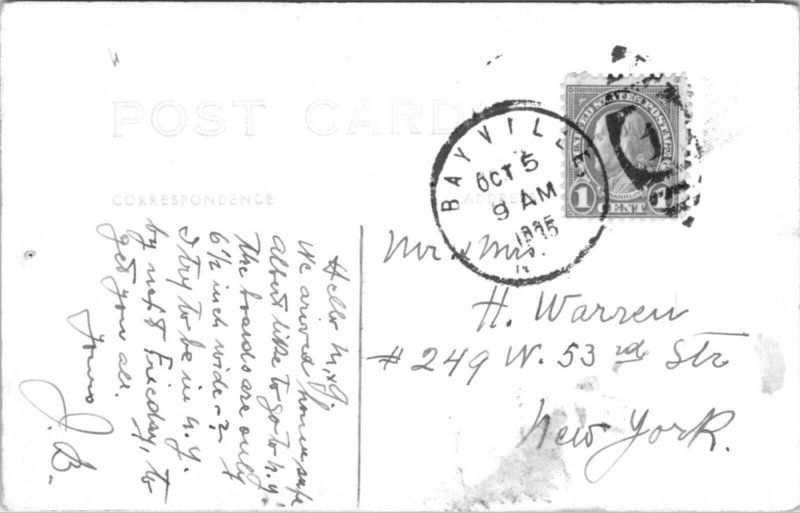 POST CARD
CORRESPONDENCE
ADDRESS
BAYVILLE
OCT 5
9 AM
UNITED STATES POSTAGE
FRANKLIN
1 CENT 1
Mr. & Mrs.
H. Warren
# 249 W. 53 rd Str
New York.
Hello M. &
We arrived home safe
Albert like to go to N.Y.
The boards are only
6 1/2 inch wide - 2
I try to be in N.Y.
by next Frieday, to
get you all.
Yours
J. B.